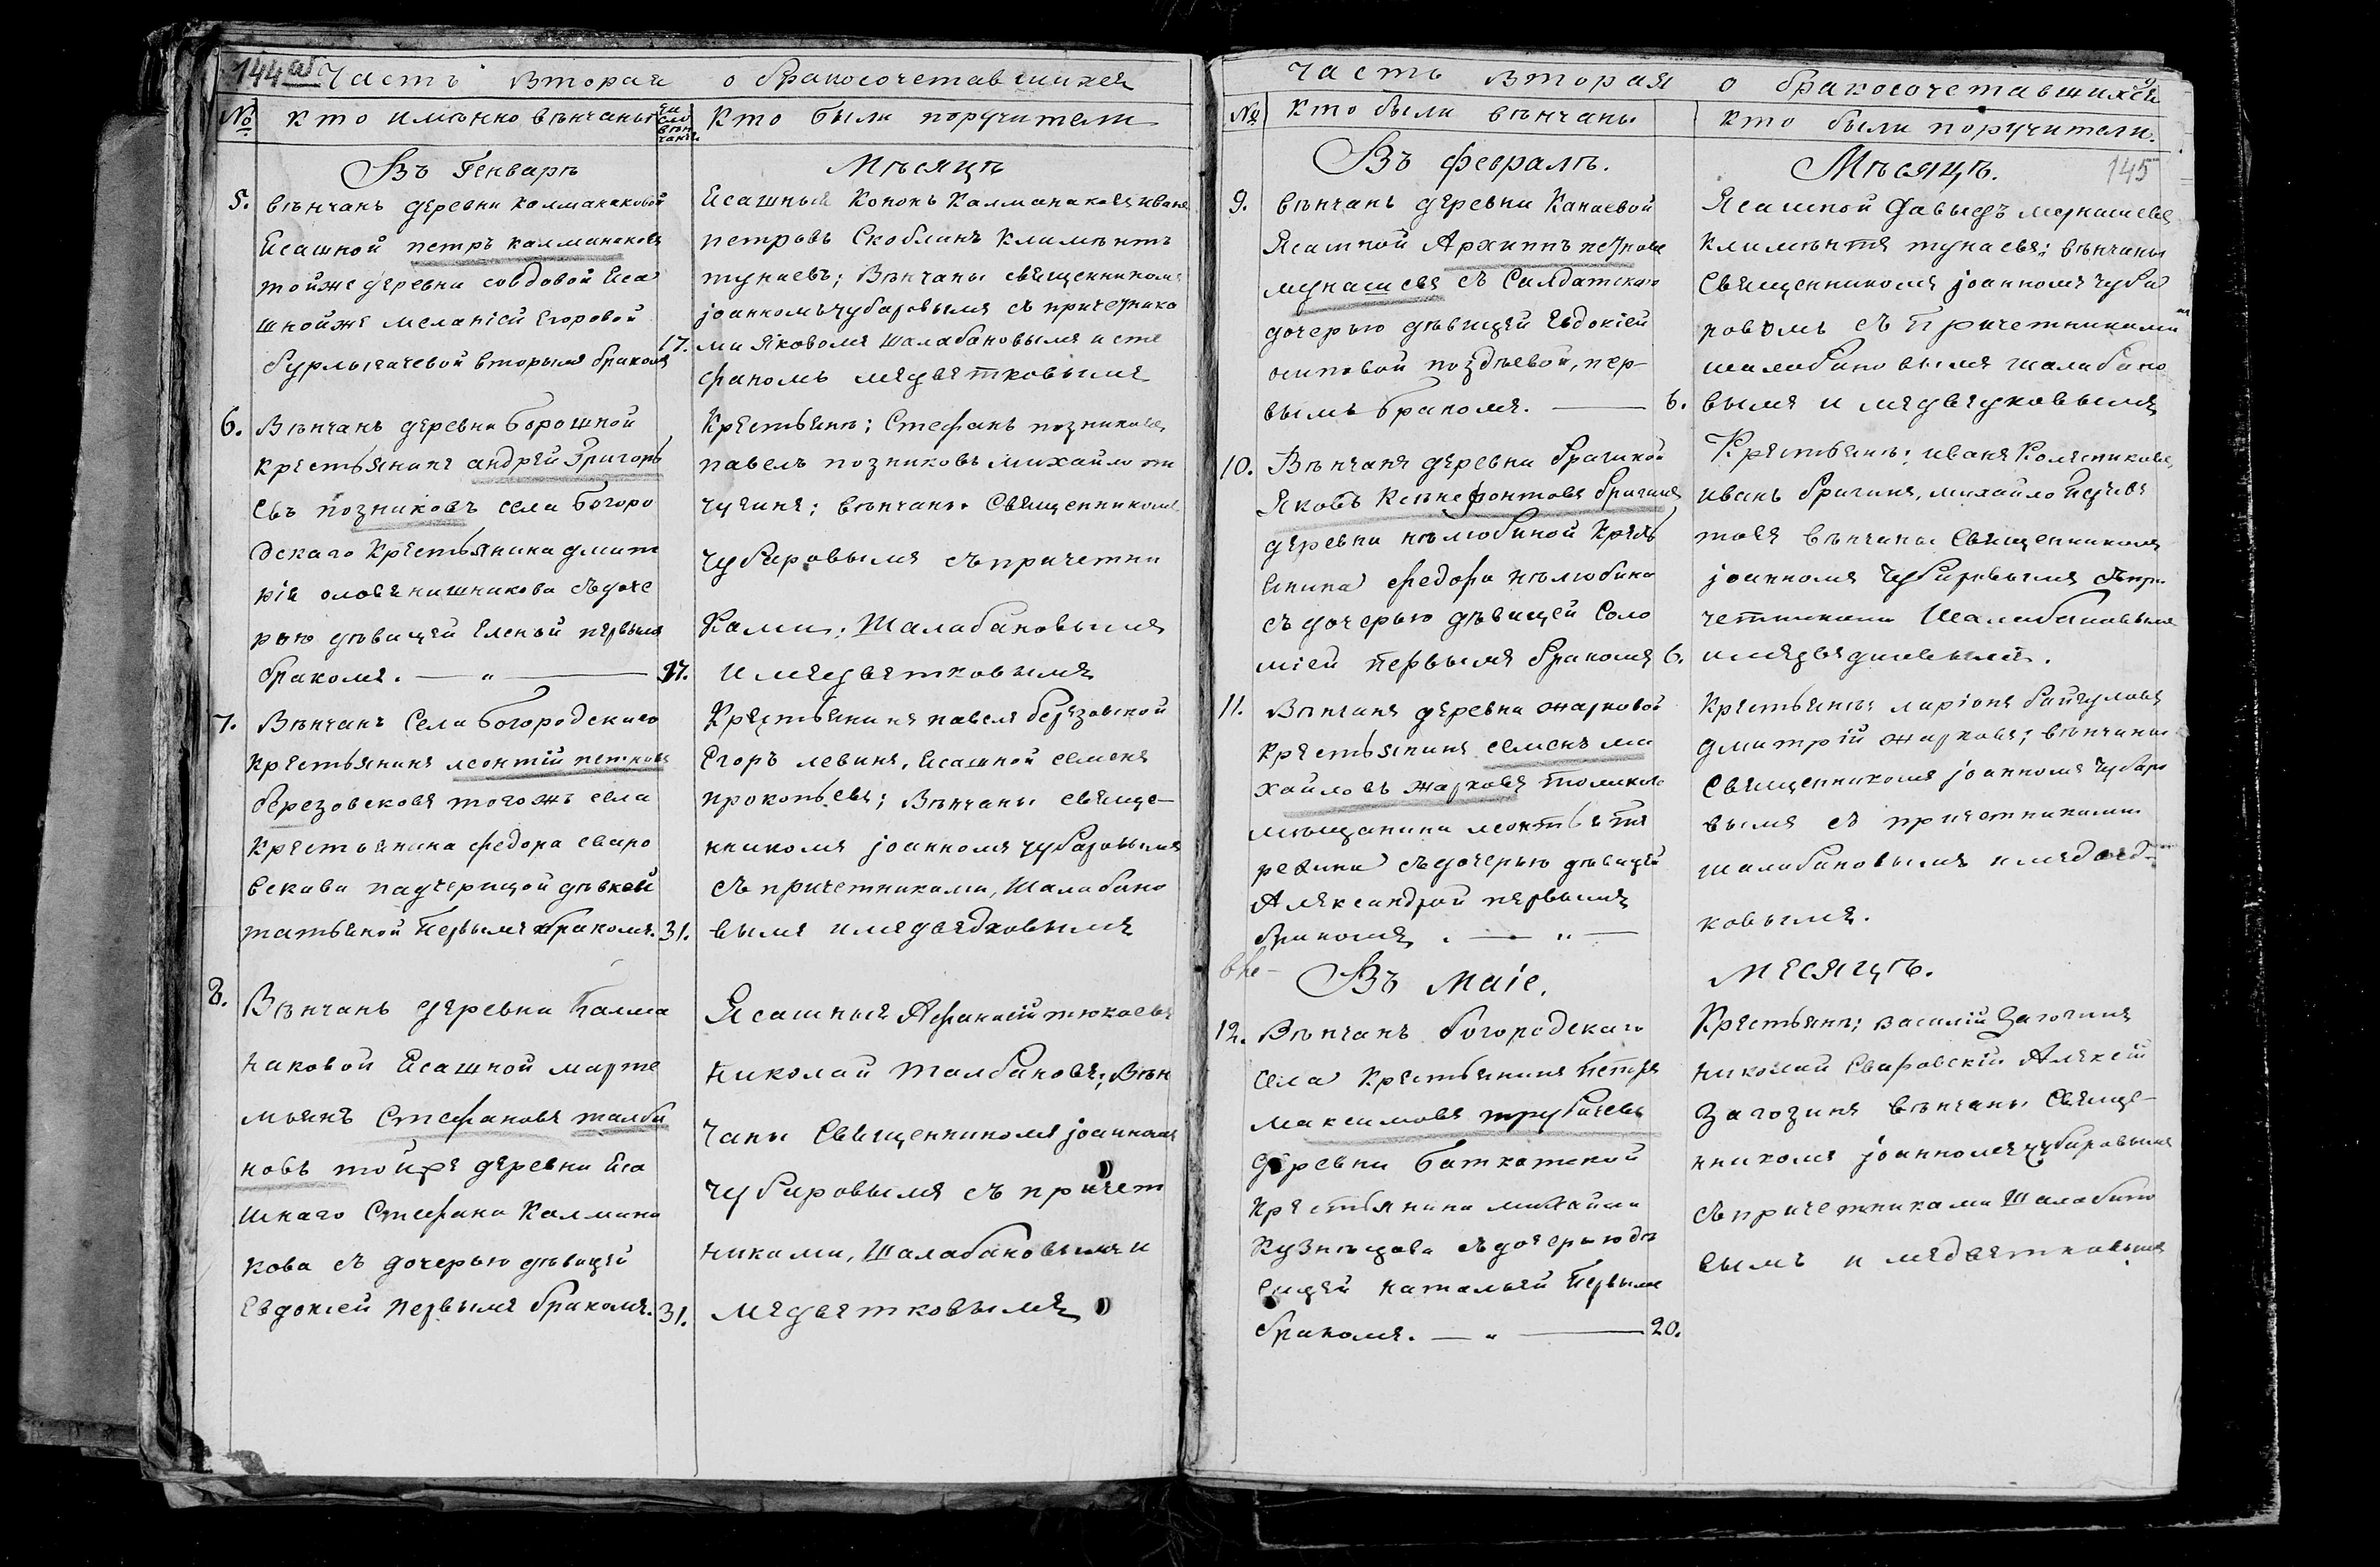 144 об
Часть вторая о бракосочетавшихся
№ кто имѣнно вѣнчаны кто были поручители
Въ Генварѣ Мѣсяцѣ
5. вѣнчанъ деревни калмаковой
Ясашной петръ калмаковъ
тойже деревни совдовой Яса
шнойже меланіей Егоровой
бурлыгачевой вторымъ бракомъ 17.
Ясашный Кононъ Калмаковъ иванъ
петровъ Скоблинъ Климентъ
тунаевъ; Вѣнчаны священникомъ
јоанномъ чубаровымъ съ причетнико
ми Яковомъ шалабановымъ и сте
фаномъ медветковымъ
6. Вѣнчанъ деревни борошной
крестьянинъ андрей Григорь
евъ позниковъ села богоро
дскаго Крестьянина дмит
рія оловенишникова съ доче
рью дѣвицей Еленой первымъ
бракомъ. — „ — 17.
Крестьянѣ; Стефанъ позниковъ
павелъ позниковъ михайло пи
чугинъ; вѣнчаны Священникомъ
чубаровымъ съ причетни
Ками, Шалабановымъ
и медветковымъ
7. Вѣнчанъ Села богородскаго
крестьянинъ леонтій петровъ
березовсковъ тогожъ села
крестьянина федора сваро
вскова падчерицой дѣвкой
татьяной первымъ бракомъ. 31.
Крестьянинъ павелъ березовской
Егоръ левинъ, Ясашной семенъ
прокопьевъ; Вѣнчаны свяще-
нникомъ јоанномъ чубаровымъ
съ причетниками, Шалабано
вымъ и медведковымъ
8. Вѣнчанъ деревни Калма
наковой Ясашной марте
мьянъ Стефановъ талба
новъ тойже деревни Яса
шнаго Стефана Калмана
кова съ дочерью дѣвицей
Евдокіей первымъ бракомъ. 31.
Ясашныя Афанасій тюкаевъ
николай талбановъ; Вѣн
чаны Священникомъ јоанномъ
чубаровымъ съ причет
никами, Шалабановымъ и
медветковымъ
Часть вторая о бракосочетавшихся
№ кто были вѣнчаны кто были поручители.
Въ февралѣ. Мѣсяцѣ. 145
9. вѣнчанъ деревни Канаевой
Ясашной Архиппъ петровъ
мунашевъ съ Салдатскою
дочерью дѣвицей Евдокіей
осиповой поздѣевой, пер-
вымъ бракомъ. — 6.
Ясашной давыдъ мунашевъ
климентѣ тунаевъ; вѣнчаны
Священникомъ јоанномъ чуба
ровымъ съ Причетниками
шалабановымъ шалабано
вымъ и медведковымъ
10. Вѣнчанъ деревни брагиной
Яковъ Ксенефонтовъ брагинъ
деревни нѣлюбиной Кресть
янина федора нѣлюбина
съ дочерью дѣвицей Соло
міей первымъ бракомъ 6.
Крестьянѣ; иванъ Колесниковъ,
иванъ брагинъ, михайло
товъ вѣнчаны Священникомъ
јоанномъ Чубаровымъ съпри
четниками Шалабановымъ
и медведковымъ.
11. Вѣнчанъ деревни жарковой
крестьянинъ семенъ ми
хайловъ жарковъ томского
мѣщанина леонтья
рехина съ дочерью дѣвицей
Александрой первымъ
бракомъ. — „ —
Крестьянѣ ларіонъ байгуловъ
дмитрій жарковъ; вѣнчаны
Священникомъ јоанномъ Чубаро
вымъ съ причетниками
шалабановымъ и медвед-
ковымъ.
Въ Маіе. Месяцѣ.
12. Вѣнчанъ богородскаго
села крестьянинъ петръ
максимовъ трубачевъ
деревни баткатской
крестьянина михайла
Кузнецова съ дочерью дѣ
вицей натальей первымъ
бракомъ. — „ — 20.
Крестьянѣ; василій Загозинъ
николай Сваровскій Алексѣй
Загозинъ вѣнчаны Свяще-
нникомъ јоанномъ чубаровымъ
съ причетниками Шалабано
вымъ и медветковымъ